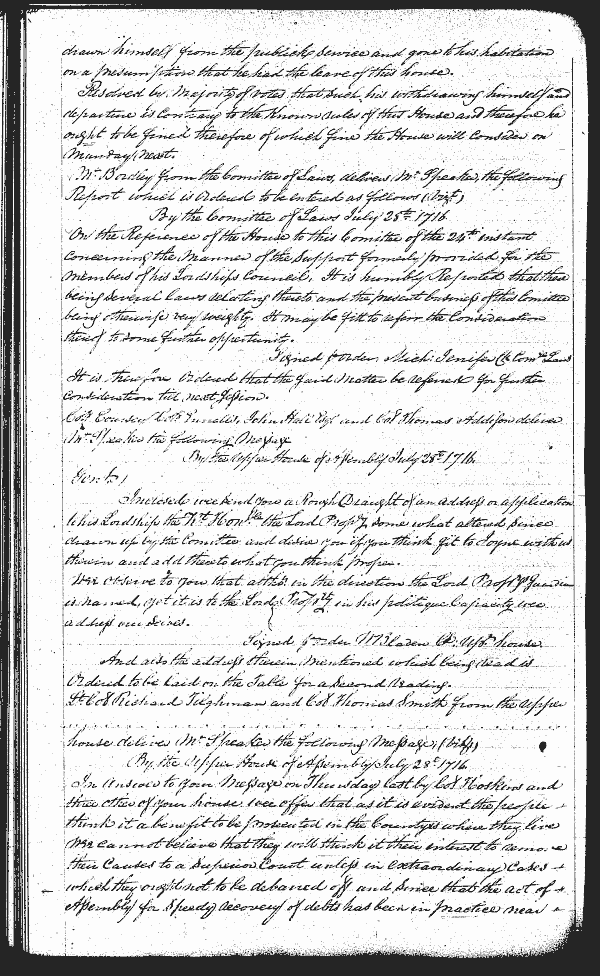 drawn himself from the publick Service and gone to his habitation
on a presumption that he had the leave of this house.
Resolved by Majority of votes that such his withdrawing himself and
departure is Contrary to the Known rules of this House and therefore he
ought to be fined therefore of which fine the House will Consider on
Munday next.
Mr. Bordley from the Comittee of Laws, delivers Mr. Speaker the following
Report which is Ordered to be entered as follows (Vizt.)
By the Comittee of Laws July 25th. 1716
On the Reference of the House to this Comittee of the 24th instant
concerning the Manner of the Support formerly provided for the
Members of his Lordships Council, It is humbly Reported that there
being several Laws relating thereto and the present business of this Comittee
being otherwise very weighty It may be fit to referr the Consideration
thereof to some further oppertunity.
Signed p order, Mich: Jenifer Cl: Comee Laws
It is therefore Ordered that the said Matter be deferred for further
consideration till next Session.
Coll Coursey Coll Ennalls, John Hall Esqr and Col Thomas Addison deliver
Mr. Speaker the following Message
By the Upper House of Assembly July 28th. 1716
Gent:)
Inclosed wee send you a Rough Draught of an address or application
to his Lordship the Rt. Honble the Lord Propry some what altered Since
drawn up by the Comittee and desire you if you think fit to Joyne with us
therein and add there to what you think proper.
Wee observe to you that altho in the direction the Lord Proprys Guardian
is named, yet it is to the Lord Propry in his politique Capacity wee
address our selves.
Signed p order W Bladen Cl: Upr house
And also the address therein Mentioned which being Read is
Ordered to be Laid on the Table for a Second Reading.
Lt. Col Richard Tilghman and Col Thomas Smith from the upper
house deliver Mr. Speaker the following Message, (Vizt)
By the Upper House of Assembly July 28th 1716
In Answer to your Message on Thursday last by Col Hoskins and
three other of your house wee offer that as it is evident the people
think it a benefit to be prosecuted in the Countys where they live
Wee cannot believe that they will think it their interest to remove
their Causes to a Superior Court unless in extraordinary Cases
which they ought not to be debarred off and Since that the act of
Assembly for Speedy recovery of debts has been in practice near